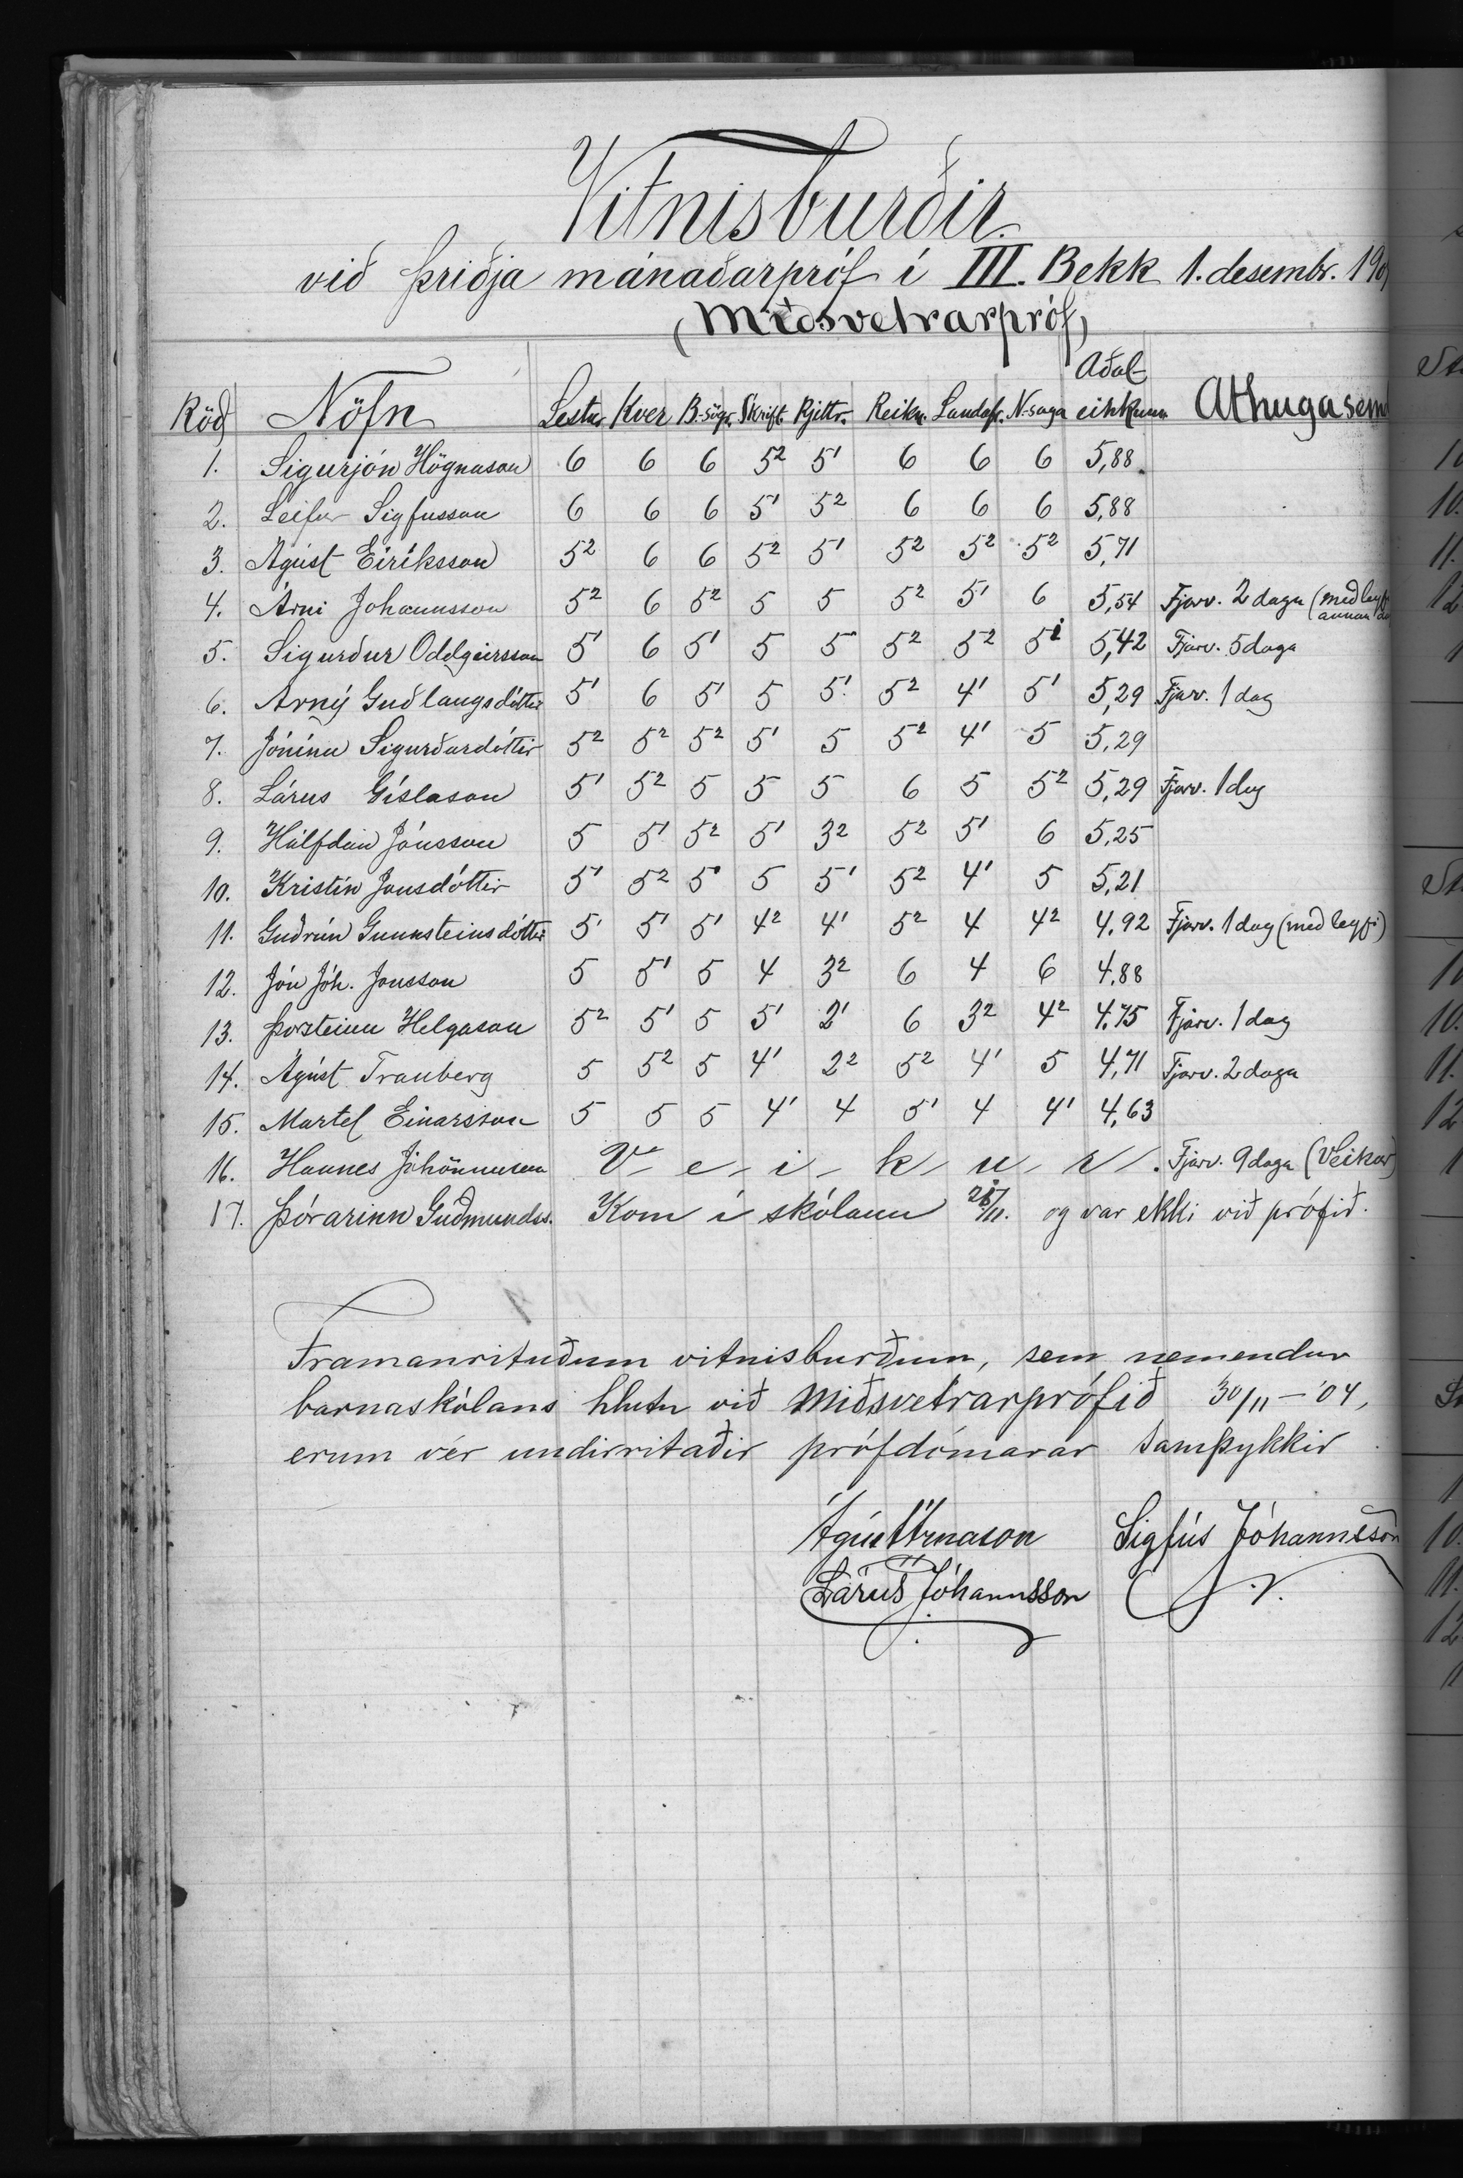 Vitnisburðir
við þriðja mánaðarpróf í III. Bekk 1. desembr. 190
(Miðsvetrarpróf)
Röð Nöfn Lestur Kver B-sögr. Skrift Rjettr. Reikn. Landafr. N-saga Aðal-einkunn Athugasemd
1. Sigurjón Högnason 6 6 6 5² 5¹ 6 6 6 5,88
2. Leifur Sigfusson 6 6 6 5¹ 5² 6 6 6 5,88
3. Ágúst Eiríksson 5² 6 6 5² 5¹ 5² 5² 5² 5,71
4. Árni Johannsson 5² 6 5² 5 5 5² 5¹ 6 5,54 Fjarv. 2 daga (með leyfi annan
5. Sigurður Oddgeirsson 5¹ 6 5¹ 5 5 5² 5² 5¹ 5,42 Fjarv. 5 daga
6. Árný Guðlaugsdóttir 5¹ 6 5¹ 5 5¹ 5² 4¹ 5¹ 5,29 Fjarv. 1 dag
7. Jónína Sigurðardóttir 5² 5² 5² 5¹ 5 5² 4¹ 5 5,29
8. Lárus Gíslason 5¹ 5² 5 5 5 6 5 5² 5,29 Fjarv. 1 dag
9. Hálfdán Jónsson 5 5¹ 5² 5¹ 3² 5² 5¹ 6 5,25
10. Kristín Jónsdóttir 5¹ 5² 5¹ 5 5¹ 5² 4¹ 5 5,21
11. Guðrún Gunnsteinsdóttir 5¹ 5¹ 5¹ 4² 4¹ 5² 4 4² 4,92 Fjarv. 1 dag (með leyfi)
12. Jón Jóh. Jonsson 5 5¹ 5 4 3² 6 4 6 4,88
13. Þorsteinn Helgason 5² 5¹ 5 5¹ 2¹ 6 3² 4² 4,75 Fjarv. 1 dag
14. Ágúst Trauberg 5 5² 5 4¹ 2² 5² 4¹ 5 4,71 Fjarv. 2 daga
15. Martel Einarsson 5 5 5 4¹ 4 5¹ 4 4¹ 4,63
16. Hannes Jóhönnuson V- e - i - k - u - r -. Fjarv. 9 daga (Veikur)
17. Þórarinn Guðmundss. Kom í skólann /11. og var ekki við prófið.
Framanrituðum vitnisburðum, sem nemendur
barnaskólans hlutu við Miðsvetrarprófið 30/11 – '04,
erum vér undirritaðir prófdómarar samþykkir
Ágúst Árnason Sigfús Jóhannsson
Lárus Jóhannsson